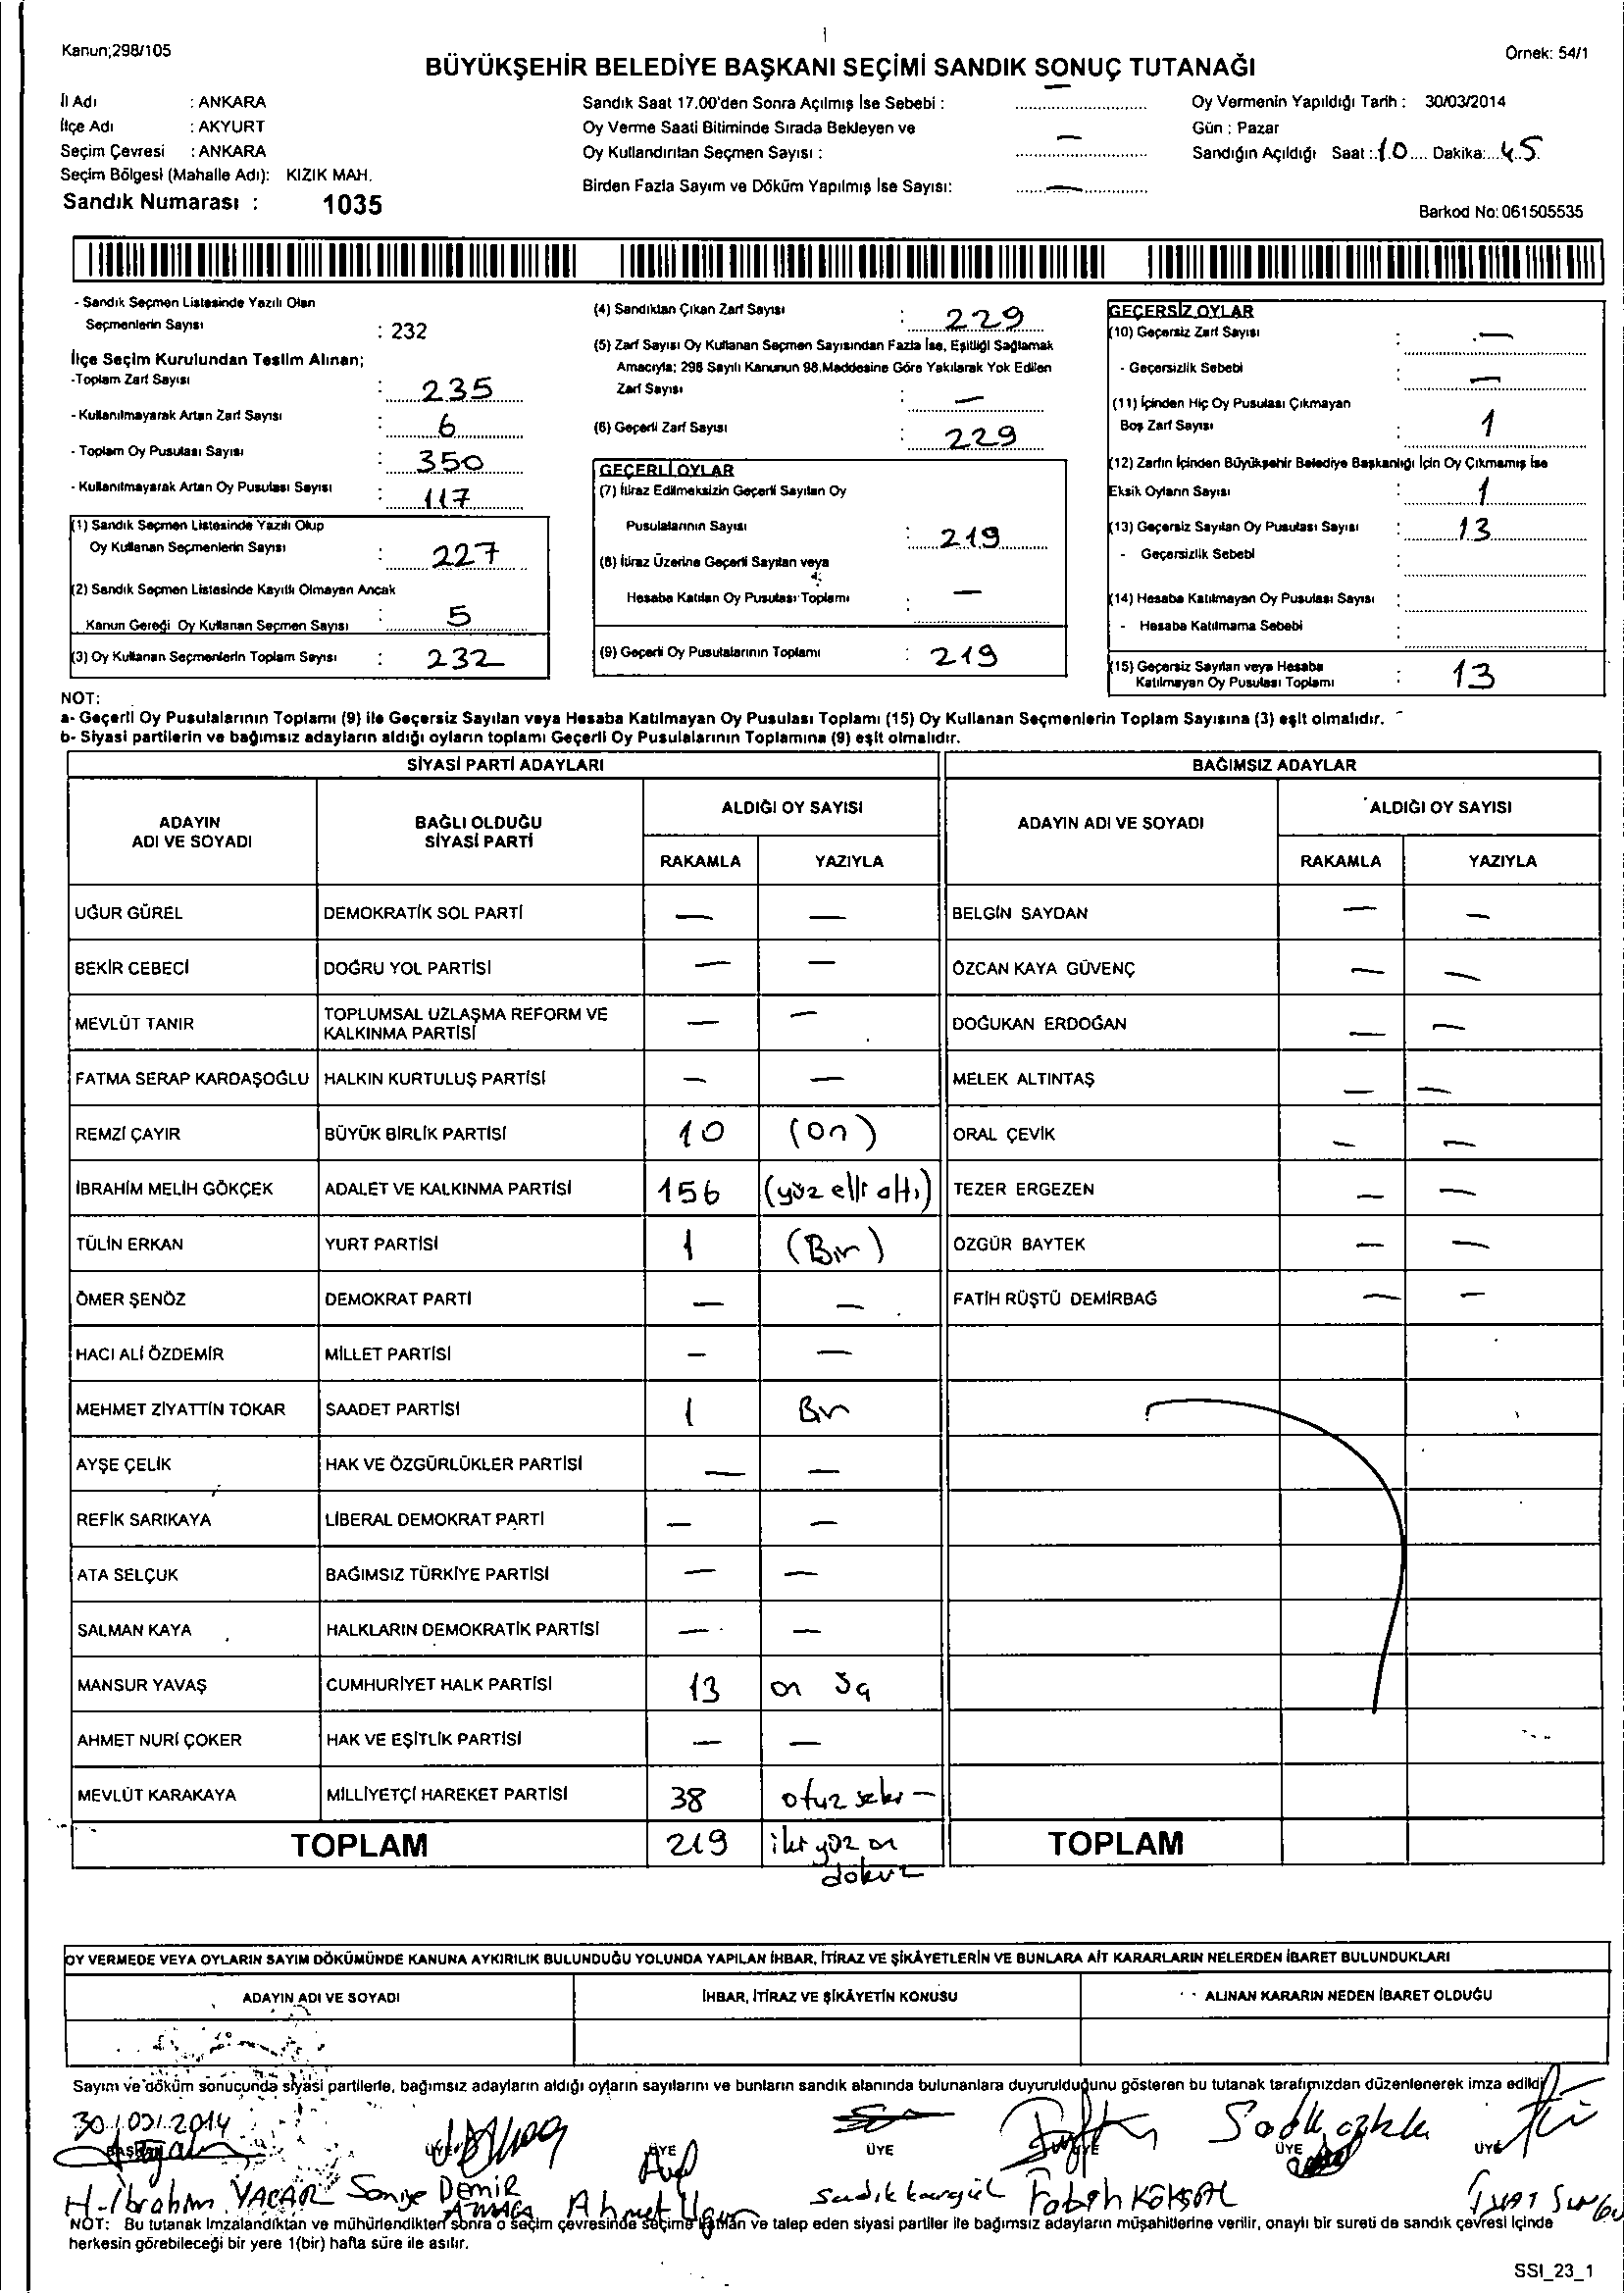 Kanun;298/105
Örnek: 54/1
BÜYÜKŞEHİR BELEDİYE BAŞKANI SEÇİMİ SANDIK SONUÇ TUTANAĞI
İl Adı : ANKARA
İlçe Adı : AKYURT
Seçim Çevresi : ANKARA
Seçim Bölgesi (Mahalle Adı): KIZIK MAH.
Sandık Numarası : 1035
Sandık Saat 17.00'den Sonra Açılmış İse Sebebi : —
Oy Verme Saati Bitiminde Sırada Bekleyen ve
Oy Kullandırılan Seçmen Sayısı : —
Birden Fazla Sayım ve Döküm Yapılmış İse Sayısı: —
Oy Vermenin Yapıldığı Tarih : 30/03/2014
Gün : Pazar
Sandığın Açıldığı Saat : 10 Dakika: 45
Barkod No: 061505535
- Sandık Seçmen Listesinde Yazılı Olan
Seçmenlerin Sayısı : 232
İlçe Seçim Kurulundan Teslim Alınan;
-Toplam Zarf Sayısı : 235
- Kullanılmayarak Artan Zarf Sayısı : 6
- Toplam Oy Pusulası Sayısı : 350
- Kullanılmayarak Artan Oy Pusulası Sayısı : 117
(1) Sandık Seçmen Listesinde Yazılı Olup
Oy Kullanan Seçmenlerin Sayısı : 227
(2) Sandık Seçmen Listesinde Kayıtlı Olmayan Ancak
Kanun Gereği Oy Kullanan Seçmen Sayısı : 5
(3) Oy Kullanan Seçmenlerin Toplam Sayısı : 232
(4) Sandıktan Çıkan Zarf Sayısı : 229
(5) Zarf Sayısı Oy Kullanan Seçmen Sayısından Fazla İse, Eşitliği Sağlamak
Amacıyla; 298 Sayılı Kanunun 98.Maddesine Göre Yakılarak Yok Edilen
Zarf Sayısı : —
(6) Geçerli Zarf Sayısı : 229
GEÇERLİ OYLAR
(7) İtiraz Edilmeksizin Geçerli Sayılan Oy
Pusulalarının Sayısı : 219
(8) İtiraz Üzerine Geçerli Sayılan veya
Hesaba Katılan Oy Pusulası Toplamı : —
(9) Geçerli Oy Pusulalarının Toplamı : 219
GEÇERSİZ OYLAR
(10) Geçersiz Zarf Sayısı : —
- Geçersizlik Sebebi : —
(11) İçinden Hiç Oy Pusulası Çıkmayan
Boş Zarf Sayısı : 1
(12) Zarfın İçinden Büyükşehir Belediye Başkanlığı İçin Oy Çıkmamış İse
Eksik Oyların Sayısı : 1
(13) Geçersiz Sayılan Oy Pusulası Sayısı : 13
- Geçersizlik Sebebi :
(14) Hesaba Katılmayan Oy Pusulası Sayısı :
- Hesaba Katılmama Sebebi :
(15) Geçersiz Sayılan veya Hesaba
Katılmayan Oy Pusulası Toplamı : 13
NOT:
a- Geçerli Oy Pusulalarının Toplamı (9) ile Geçersiz Sayılan veya Hesaba Katılmayan Oy Pusulası Toplamı (15) Oy Kullanan Seçmenlerin Toplam Sayısına (3) eşit olmalıdır.
b- Siyasi partilerin ve bağımsız adayların aldığı oyların toplamı Geçerli Oy Pusulalarının Toplamına (9) eşit olmalıdır.
SİYASİ PARTİ ADAYLARI
ADAYIN ADI VE SOYADI BAĞLI OLDUĞU SİYASİ PARTİ ALDIĞI OY SAYISI
RAKAMLA YAZIYLA
UĞUR GÜREL DEMOKRATİK SOL PARTİ — —
BEKİR CEBECİ DOĞRU YOL PARTİSİ — —
MEVLÜT TANIR TOPLUMSAL UZLAŞMA REFORM VE KALKINMA PARTİSİ — —
FATMA SERAP KARDAŞOĞLU HALKIN KURTULUŞ PARTİSİ — —
REMZİ ÇAYIR BÜYÜK BİRLİK PARTİSİ 10 (on)
İBRAHİM MELİH GÖKÇEK ADALET VE KALKINMA PARTİSİ 156 (yüz elli altı)
TÜLİN ERKAN YURT PARTİSİ 1 (Bir)
ÖMER ŞENÖZ DEMOKRAT PARTİ — —
HACI ALİ ÖZDEMİR MİLLET PARTİSİ — —
MEHMET ZİYATTİN TOKAR SAADET PARTİSİ 1 Bir
AYŞE ÇELİK HAK VE ÖZGÜRLÜKLER PARTİSİ — —
REFİK SARIKAYA LİBERAL DEMOKRAT PARTİ — —
ATA SELÇUK BAĞIMSIZ TÜRKİYE PARTİSİ — —
SALMAN KAYA HALKLARIN DEMOKRATİK PARTİSİ — —
MANSUR YAVAŞ CUMHURİYET HALK PARTİSİ 13 on
AHMET NURİ ÇOKER HAK VE EŞİTLİK PARTİSİ — —
MEVLÜT KARAKAYA MİLLİYETÇİ HAREKET PARTİSİ 38 otuz sekiz
TOPLAM 219 iki yüz on dokuz
BAĞIMSIZ ADAYLAR
ADAYIN ADI VE SOYADI ALDIĞI OY SAYISI
RAKAMLA YAZIYLA
BELGİN SAYDAN — —
ÖZCAN KAYA GÜVENÇ — —
DOĞUKAN ERDOĞAN — —
MELEK ALTINTAŞ — —
ORAL ÇEVİK — —
TEZER ERGEZEN — —
ÖZGÜR BAYTEK — —
FATİH RÜŞTÜ DEMİRBAĞ — —
TOPLAM
OY VERMEDE VEYA OYLARIN SAYIM DÖKÜMÜNDE KANUNA AYKIRILIK BULUNDUĞU YOLUNDA YAPILAN İHBAR, İTİRAZ VE ŞİKÂYETLERİN VE BUNLARA AİT KARARLARIN NELERDEN İBARET BULUNDUKLARI
ADAYIN ADI VE SOYADI İHBAR, İTİRAZ VE ŞİKÂYETİN KONUSU ALINAN KARARIN NEDEN İBARET OLDUĞU
Sayım ve döküm sonucunda siyasi partilerle, bağımsız adayların aldığı oyların sayılarını ve bunların sandık alanında bulunanlara duyurulduğunu gösteren bu tutanak tarafımızdan düzenlenerek imza edildi
30/03/2014
BAŞKAN ÜYE ÜYE ÜYE ÜYE ÜYE ÜYE
H.İbrahim YAÇAR Saniye DEMİR Ahmet Uğur Sadık Fatih KÖKSAL
NOT: Bu tutanak imzalandıktan ve mühürlendikten sonra o seçim çevresinde seçime katılan ve talep eden siyasi partiler ile bağımsız adayların müşahitlerine verilir, onaylı bir sureti de sandık çevresi içinde
herkesin görebileceği bir yere 1(bir) hafta süre ile asılır.
SSI_23_1